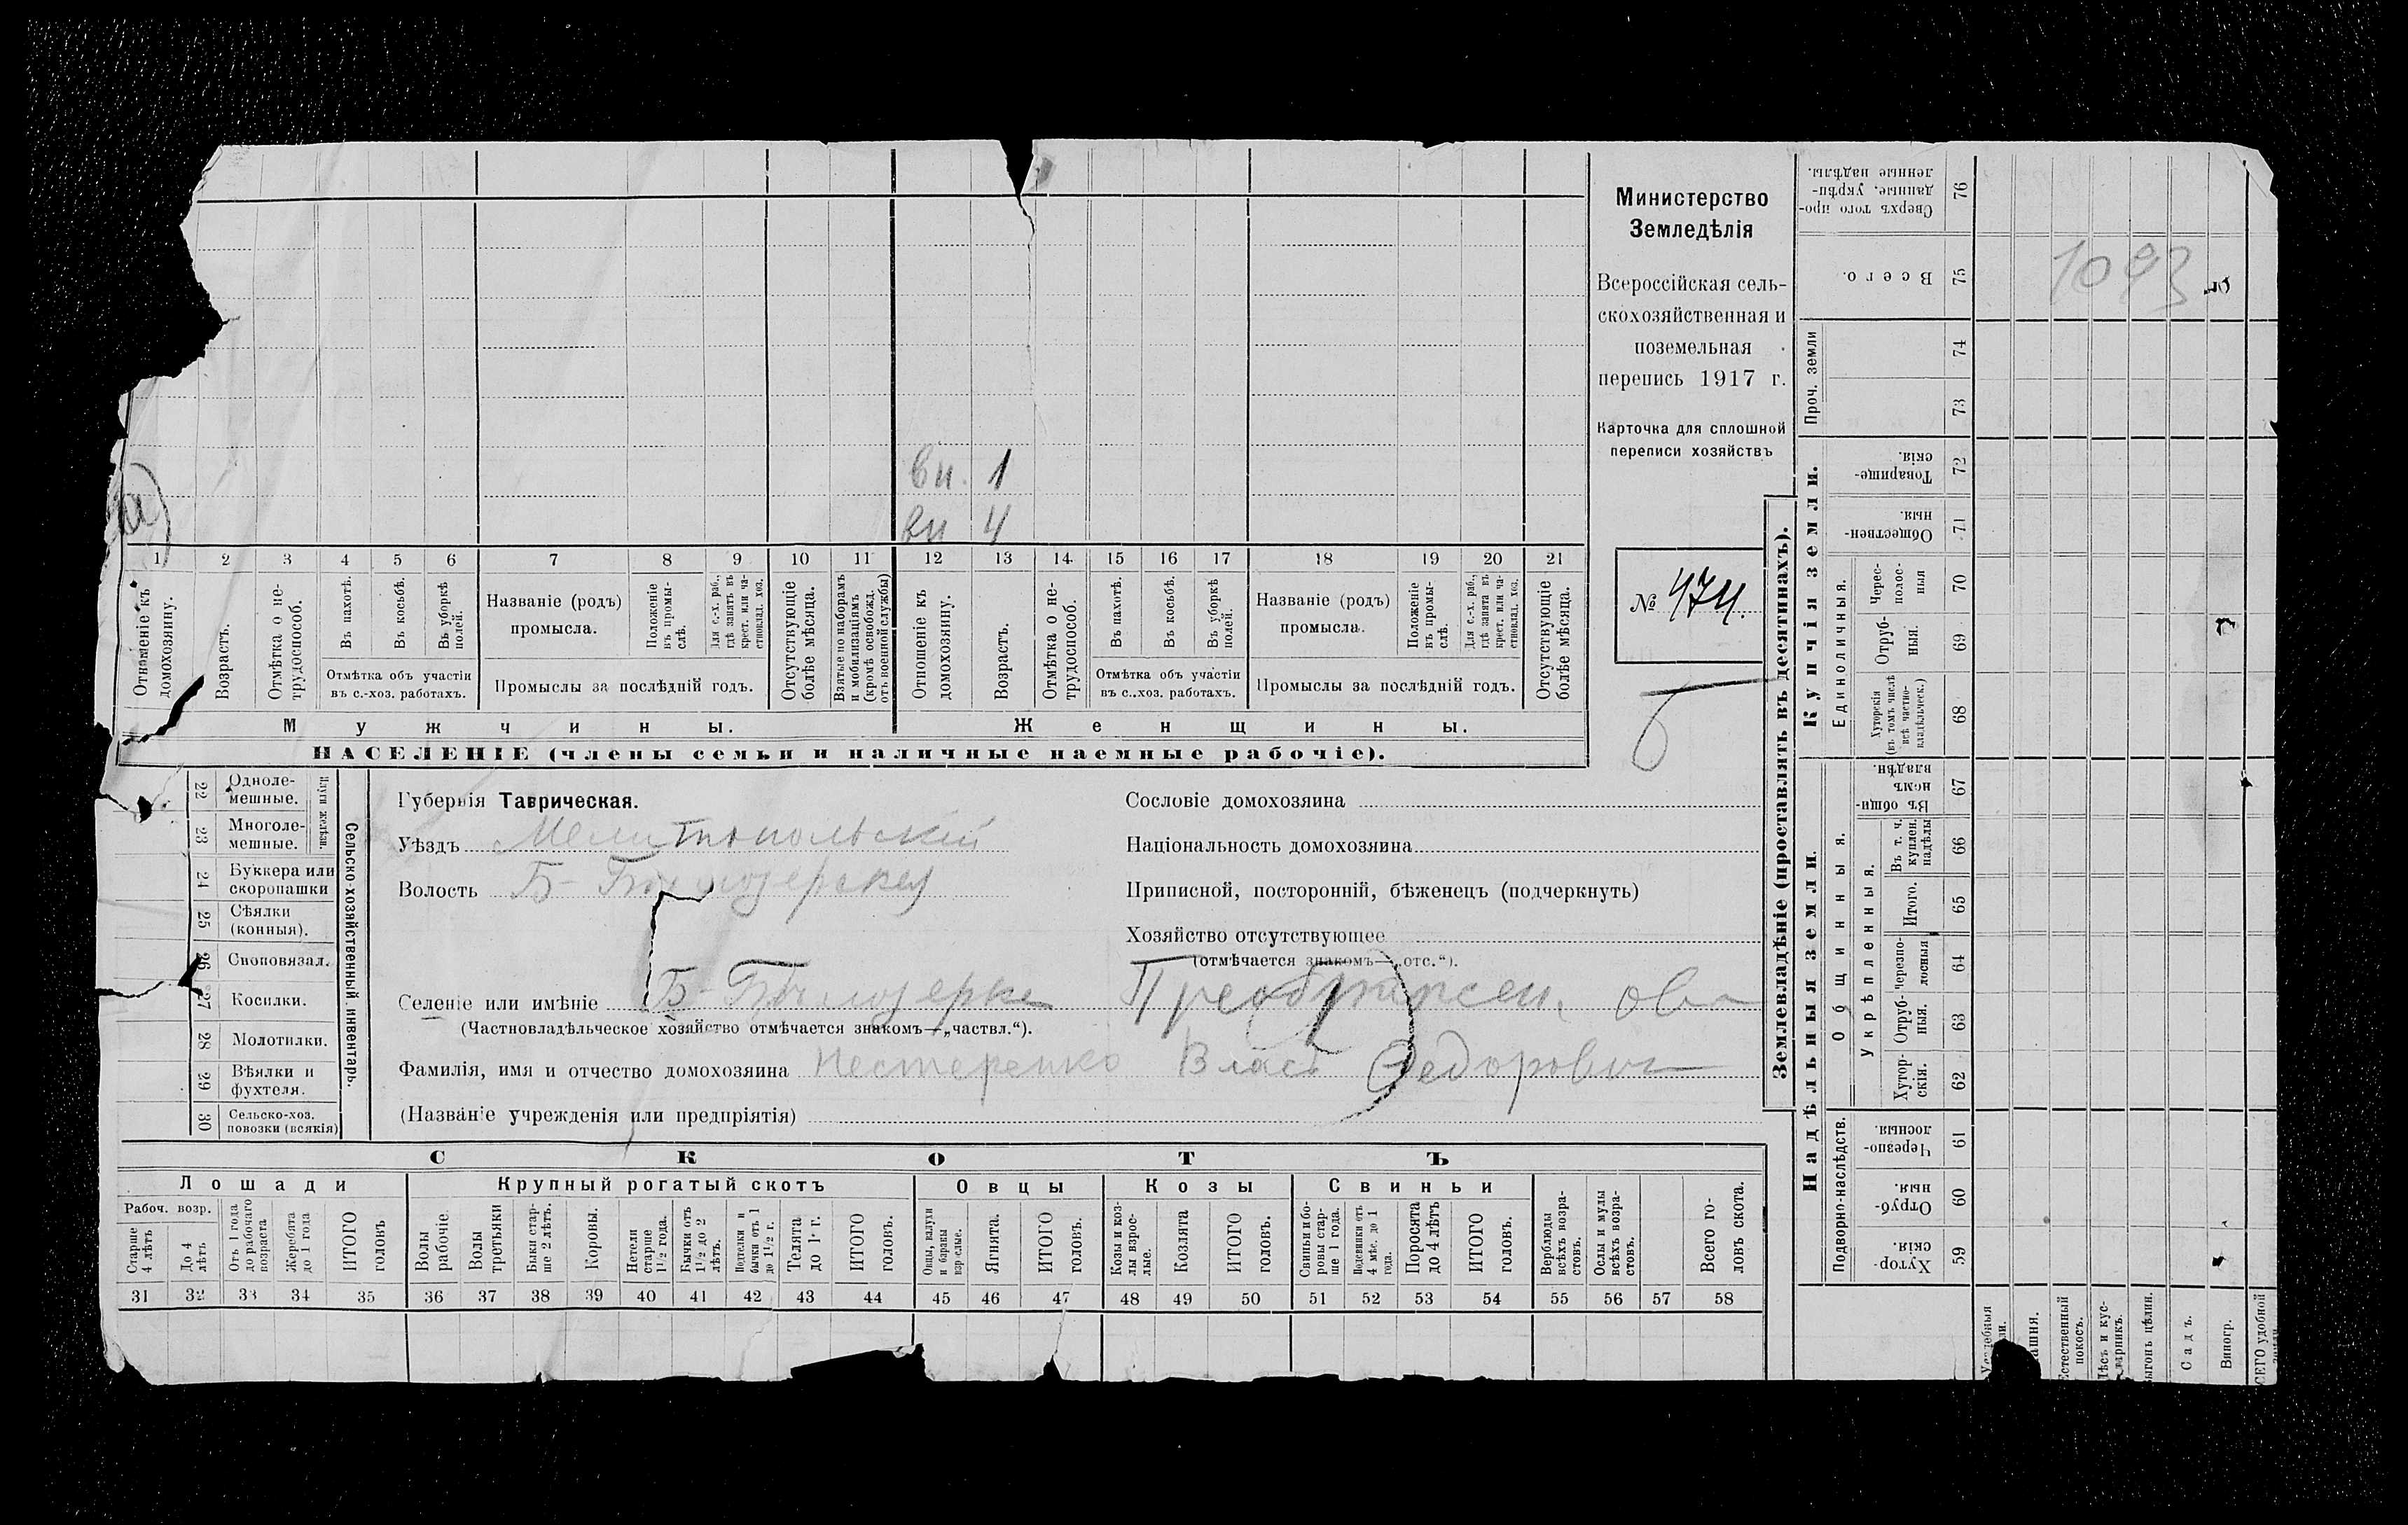 вн. 1
вн 4
1 2 3 4 5 6 7 8 9 10 11 12 13 14 15 16 17 18 19 20 21
Отношеніе къ домохозяину.
Возрастъ.
Отмѣтка о не-трудоспособ.
Въ пахотѣ.
Въ косьбѣ.
Въ уборкѣ полей.
Отмѣтка объ участіи
въ с.-хоз. работахъ.
Названіе (родъ)
промысла.
Положеніе въ промы-слѣ.
Для с.-х. раб., гдѣ занятъ въ крест. или ча-стновлад. хоз.
Промыслы за послѣдній годъ.
Отсутствующіе болѣе мѣсяца.
Взятые по наборамъ и мобилизаціямъ (кромѣ освобожд. отъ военной службы)
Отношеніе къ домохозяину.
Возрастъ.
Отмѣтка о не-трудоспособ.
Въ пахотѣ.
Въ косьбѣ.
Въ уборкѣ полей.
Отмѣтка объ участіи
въ с..хоз. работахъ.
Названіе (родъ)
промысла.
Положеніе въ промы-слѣ.
Для с.-х. раб., гдѣ занята въ крест. или ча-стновлад. хоз.
Промыслы за послѣдній годъ.
Отсутствующіе болѣе мѣсяца.
Мужчины.
Женщины.
НАСЕЛЕНІЕ (члены семьи и наличные наемные рабочіе).
Министерство
Земледѣлія
Всероссійская сель-
скохозяйственная и
поземельная
перепись 1917 г.
Карточка для сплошной
переписи хозяйствъ
№ 474.
Б
22 Одноле-мешные.
23 Многоле-мешные.
Плуги желѣзн.
24 Буккера или скоропашки
25 Сѣялки (конныя).
26 Сноповязал.
27 Косилки.
28 Молотилки.
29 Вѣялки и фухтеля.
30 Сельско-хоз. повозки (всякія)
Сельско-хозяйственный инвентарь.
Губернія Таврическая.
Уѣздъ Мелитопольскій
Волость Б-Бѣлозерская
Селеніе или имѣніе Б-Бѣлозерка Преображен. ова
(Частновладѣльческое хозяйство отмѣчается знакомъ—„частвл.“).
Фамилія, имя и отчество домохозяина Нестеренко Власъ Федорович
(Названіе учрежденія или предпріятія)
Сословіе домохозяина
Національность домохозяина
Приписной, посторонній, бѣженецъ (подчеркнуть)
Хозяйство отсутствующее
(отмѣчается знакомъ—„отс.“).
СКОТЪ
Лошади
Крупный рогатый скотъ
Овцы
Козы
Свиньи
Рабоч. возр.
Старше 4 лѣтъ
До 4 лѣтъ
Отъ 1 года до рабочаго возраста
Жеребята до 1 года
ИТОГО головъ
Волы рабочіе.
Волы третьяки
Быки стар-ше 2 лѣтъ.
Коровы.
Нетели старше 1½ года.
Бычки отъ 1½ до 2 лѣтъ.
Подтелки и бычки отъ 1 до 1½ г.
Телята до 1 г.
ИТОГО головъ.
Овцы, валухи и бараны взрослые.
Ягнята.
ИТОГО головъ.
Козы и коз-лы взрос-лые.
Козлята
ИТОГО головъ.
Свиньи и бо-ровы стар-ше 1 года.
Подсвинки отъ 4 мѣс. до 1 года.
Поросята до 4 лѣтъ
ИТОГО головъ.
Верблюды всѣхъ возра-стовъ.
Ослы и мулы всѣхъ возра-стовъ.
Всего го-ловъ скота.
31 32 33 34 35 36 37 38 39 40 41 42 43 44 45 46 47 48 49 50 51 52 53 54 55 56 57 58
Землевладѣніе (проставлять въ десятинахъ).
Сверхъ того про-данные, укрѣп-ленные надѣлы. 76
Всего. 75
1093
Проч. земли
74
73
Купчія земли.
Товарище-скія. 72
Обществен-ныя. 71
Единоличныя.
Черес-полос-ныя 70
Отруб-ныя. 69
Хуторскія (въ томъ числѣ всѣ частно-владѣльческ.) 68
Надѣльныя земли.
Общинныя.
Въ общи-номъ владѣн. 67
Укрѣпленныя.
Въ т. ч. куплен. надѣлы 66
Итого. 65
Черезпо-лосныя 64
Отруб-ныя. 63
Хутор-скія. 62
Подворно-наслѣдств.
Черезпо-лосныя. 61
Отруб-ныя. 60
Хутор-скія. 59
Естественный покосъ.
Лѣсъ и кус-тарникъ.
Садъ.
Виногр.